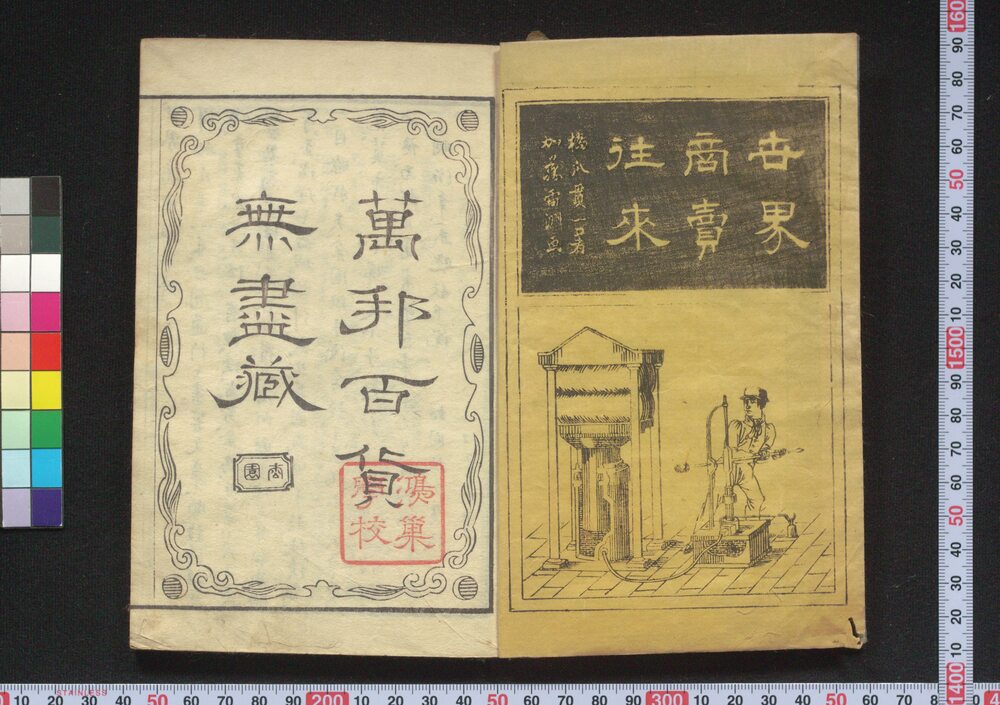 世界
商賣
往來
橋爪貫一著
加藤雷洲画
萬邦百貨
無盡藏
鴻巢
學校
STAINLESS